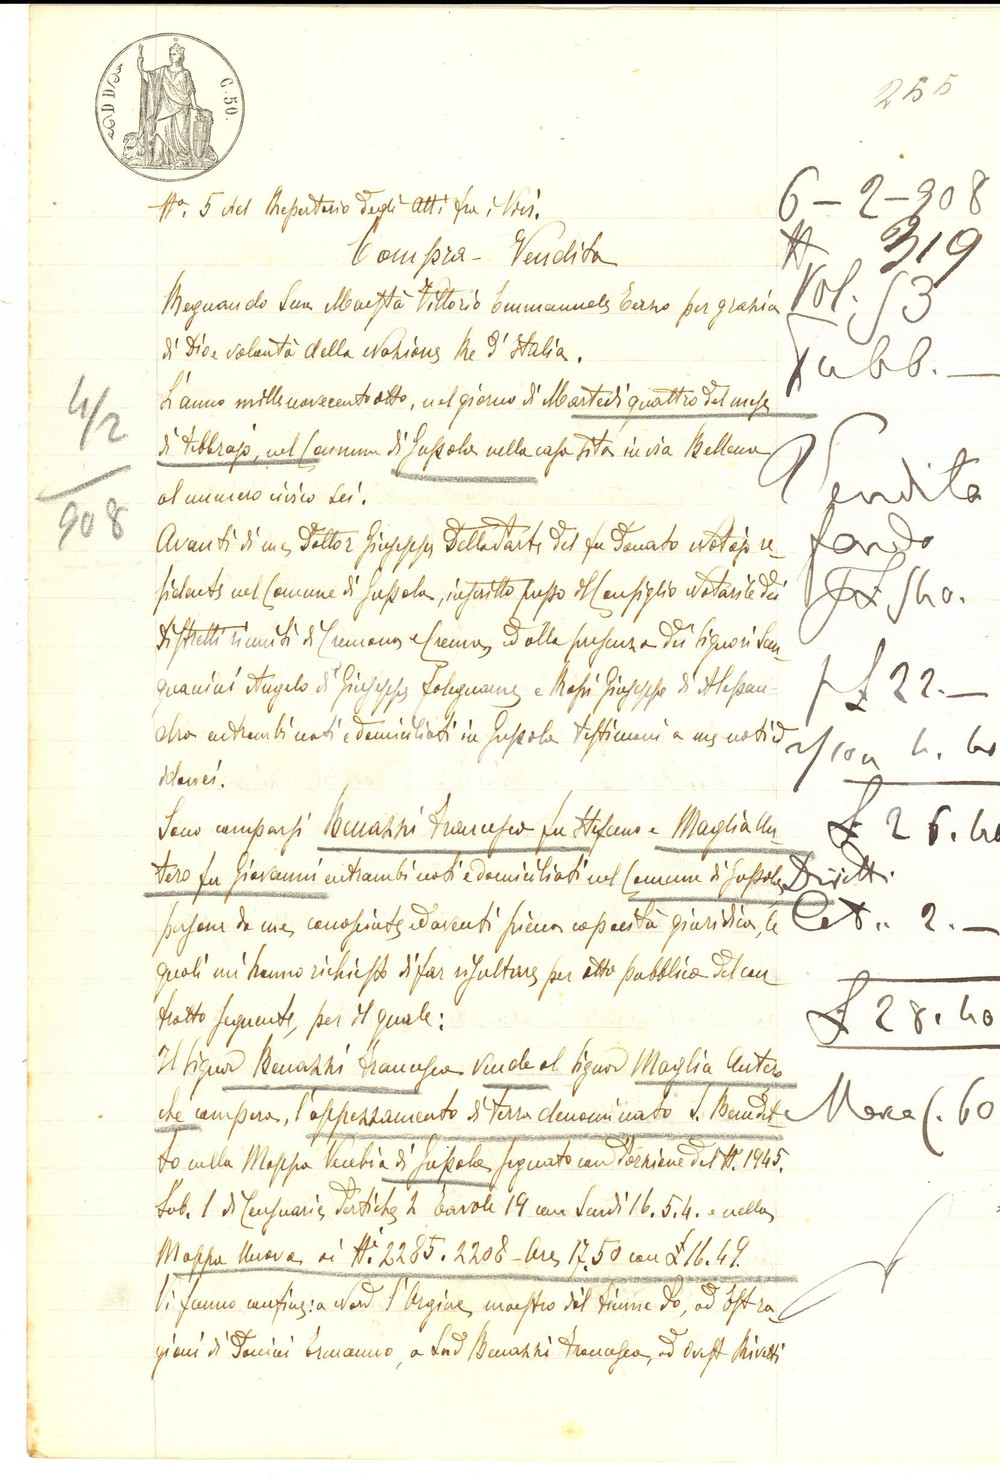 C. 50.
255
N.º 5 del Repertorio degli Atti fra i Vivi.
Compra - Vendita
Regnando Sua Maestà Vittorio Emmanuele Terzo per grazia
di Dio e volontà della Nazione Re d'Italia.
L'anno millenovecentootto, nel giorno di Martedì quattro del mese
di Febbrajo, nel Comune di Gussola nella casa sita in via Bellena
al numero civico sei.
Avanti di me Dottor Giuseppe Dellaparte del fu Donato Notajo re-
sidente nel Comune di Gussola, inscritto presso il Consiglio Notarile dei
Distretti riuniti di Cremona e Crema, ed alla presenza dei Signori San-
guanini Angelo di Giuseppe falegname e Rossi Giuseppe di Alessan-
dro entrambi nati e domiciliati in Gussola testimoni a me noti ed
idonei.
Sono comparsi Benazzi Francesco fu Stefano e Maglia An-
tero fu Giovanni entrambi nati e domiciliati nel Comune di Gussola
persone da me conosciute ed aventi piena capacità giuridica, le
quali mi hanno richiesto di far risultare per atto pubblico del con
tratto seguente, per il quale:
Il Signor Benazzi Francesco vende al Signor Maglia Antero
che compera, l'appezzamento di terra denominato S. Benedet-
to nella Mappa Vecchia di Gussola segnato con porzione del N. 1945.
Sub. 1 di Censuarie Pertiche 2 tavole 19 con Scudi 16. 5. 4. e nella
Mappa Nuova ai N.i 2285. 2208 - Are 17.50 con £ 16.49.
Vi fanno confine: a Nord l'Argine maestro del fiume Po, ad Est ra-
gioni di Donini Ermanno, a Sud Benazzi Francesco, ad Ovest Rivetti
4/2
908
6-2-908
N 319
Vol. 53
Pubb. -
Vendita
fondo
£ 540.
£ 22. -
4. 40
£ 26. 40
Diritti
Cat.. 2. -
£ 28. 40
Mora 1. 60